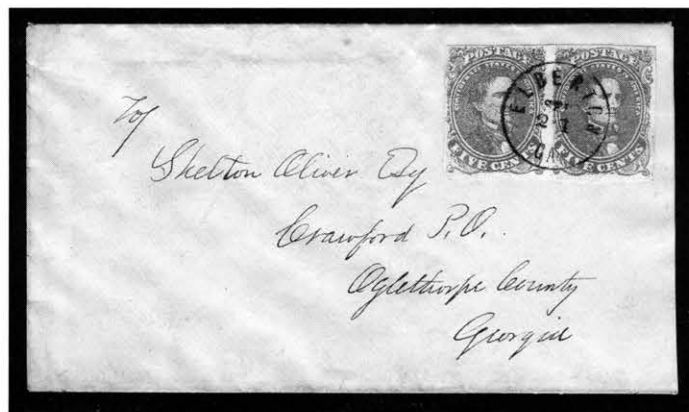 POSTAGE POSTAGE
FIVE CENTS FIVE CENTS
ELBERTON
GA.
To/
Shelton Oliver Esq
Crawford P.O.
Oglethorpe County
Georgia